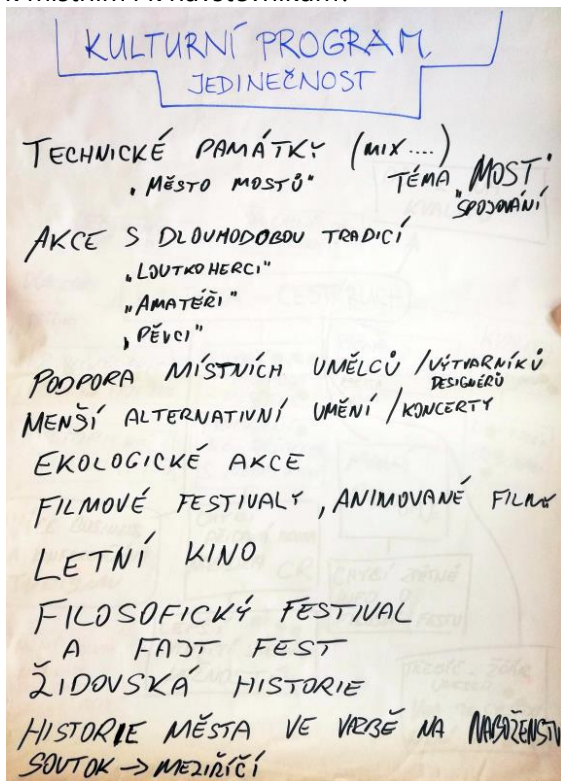 KULTURNÍ PROGRAM
JEDINEČNOST
TECHNICKÉ PAMÁTKY (MIX....)
"MĚSTO MOSTŮ" TÉMA "MOST"
"SPOJOVÁNÍ
AKCE S DLOUHODOBOU TRADICÍ
"LOUTKOHERCI"
"AMATÉŘI"
"PĚVCI"
PODPORA MÍSTNÍCH UMĚLCŮ / VÝTVARNÍKŮ
DESIGNÉRŮ
MENŠÍ ALTERNATIVNÍ UMĚNÍ / KONCERTY
EKOLOGICKÉ AKCE
FILMOVÉ FESTIVALY, ANIMOVANÉ FILMY
LETNÍ KINO
FILOSOFICKÝ FESTIVAL
A FAJT FEST
ŽIDOVSKÁ HISTORIE
HISTORIE MĚSTA VE VAZBĚ NA NÁBOŽENSTV
SOUTOK → MEZIŘÍČÍ